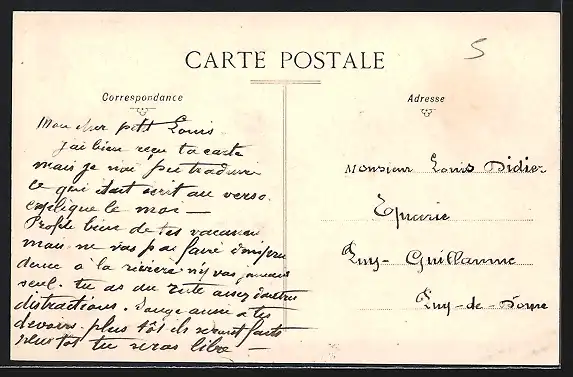 CARTE POSTALE
5
Correspondance
Mon cher petit Louis
j'ai bien reçu ta carte
mais je n'ai pu traduire
ce qui était écrit au verso.
explique le moi —
Profite bien de tes vacances
mais ne vas pas faire d'impru
dence à la rivière n'y vas jamais
seul. tu as du reste assez d'autres
distractions. Songe aussi à tes
devoirs. plus tôt ils seront faits
plus tôt tu seras libre —
Adresse
Monsieur Louis Didier
Epicerie
Puy-Guillaume
Puy-de-Dome